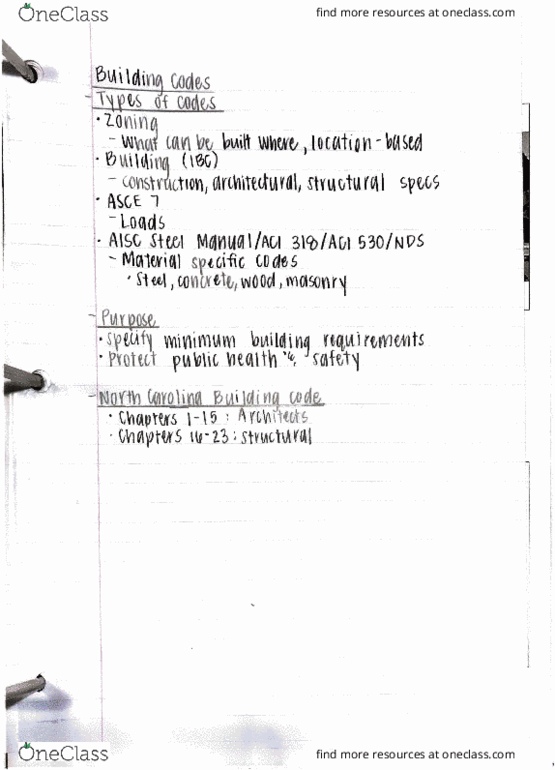 OneClass
find more resources at oneclass.com
Building Codes
- Types of Codes
• Zoning
- What can be built where, location-based
• Building (IBC)
- construction, architectural, structural specs
• ASCE 7
- Loads
• AISC Steel Manual/ACI 318/ACI 530/NDS
- Material specific codes
• Steel, concrete, wood, masonry
- Purpose
• Specify minimum building requirements
• Protect public health & safety
- North Carolina Building code
• Chapters 1-15 : Architects
• Chapters 16-23 : structural
OneClass
find more resources at oneclass.com